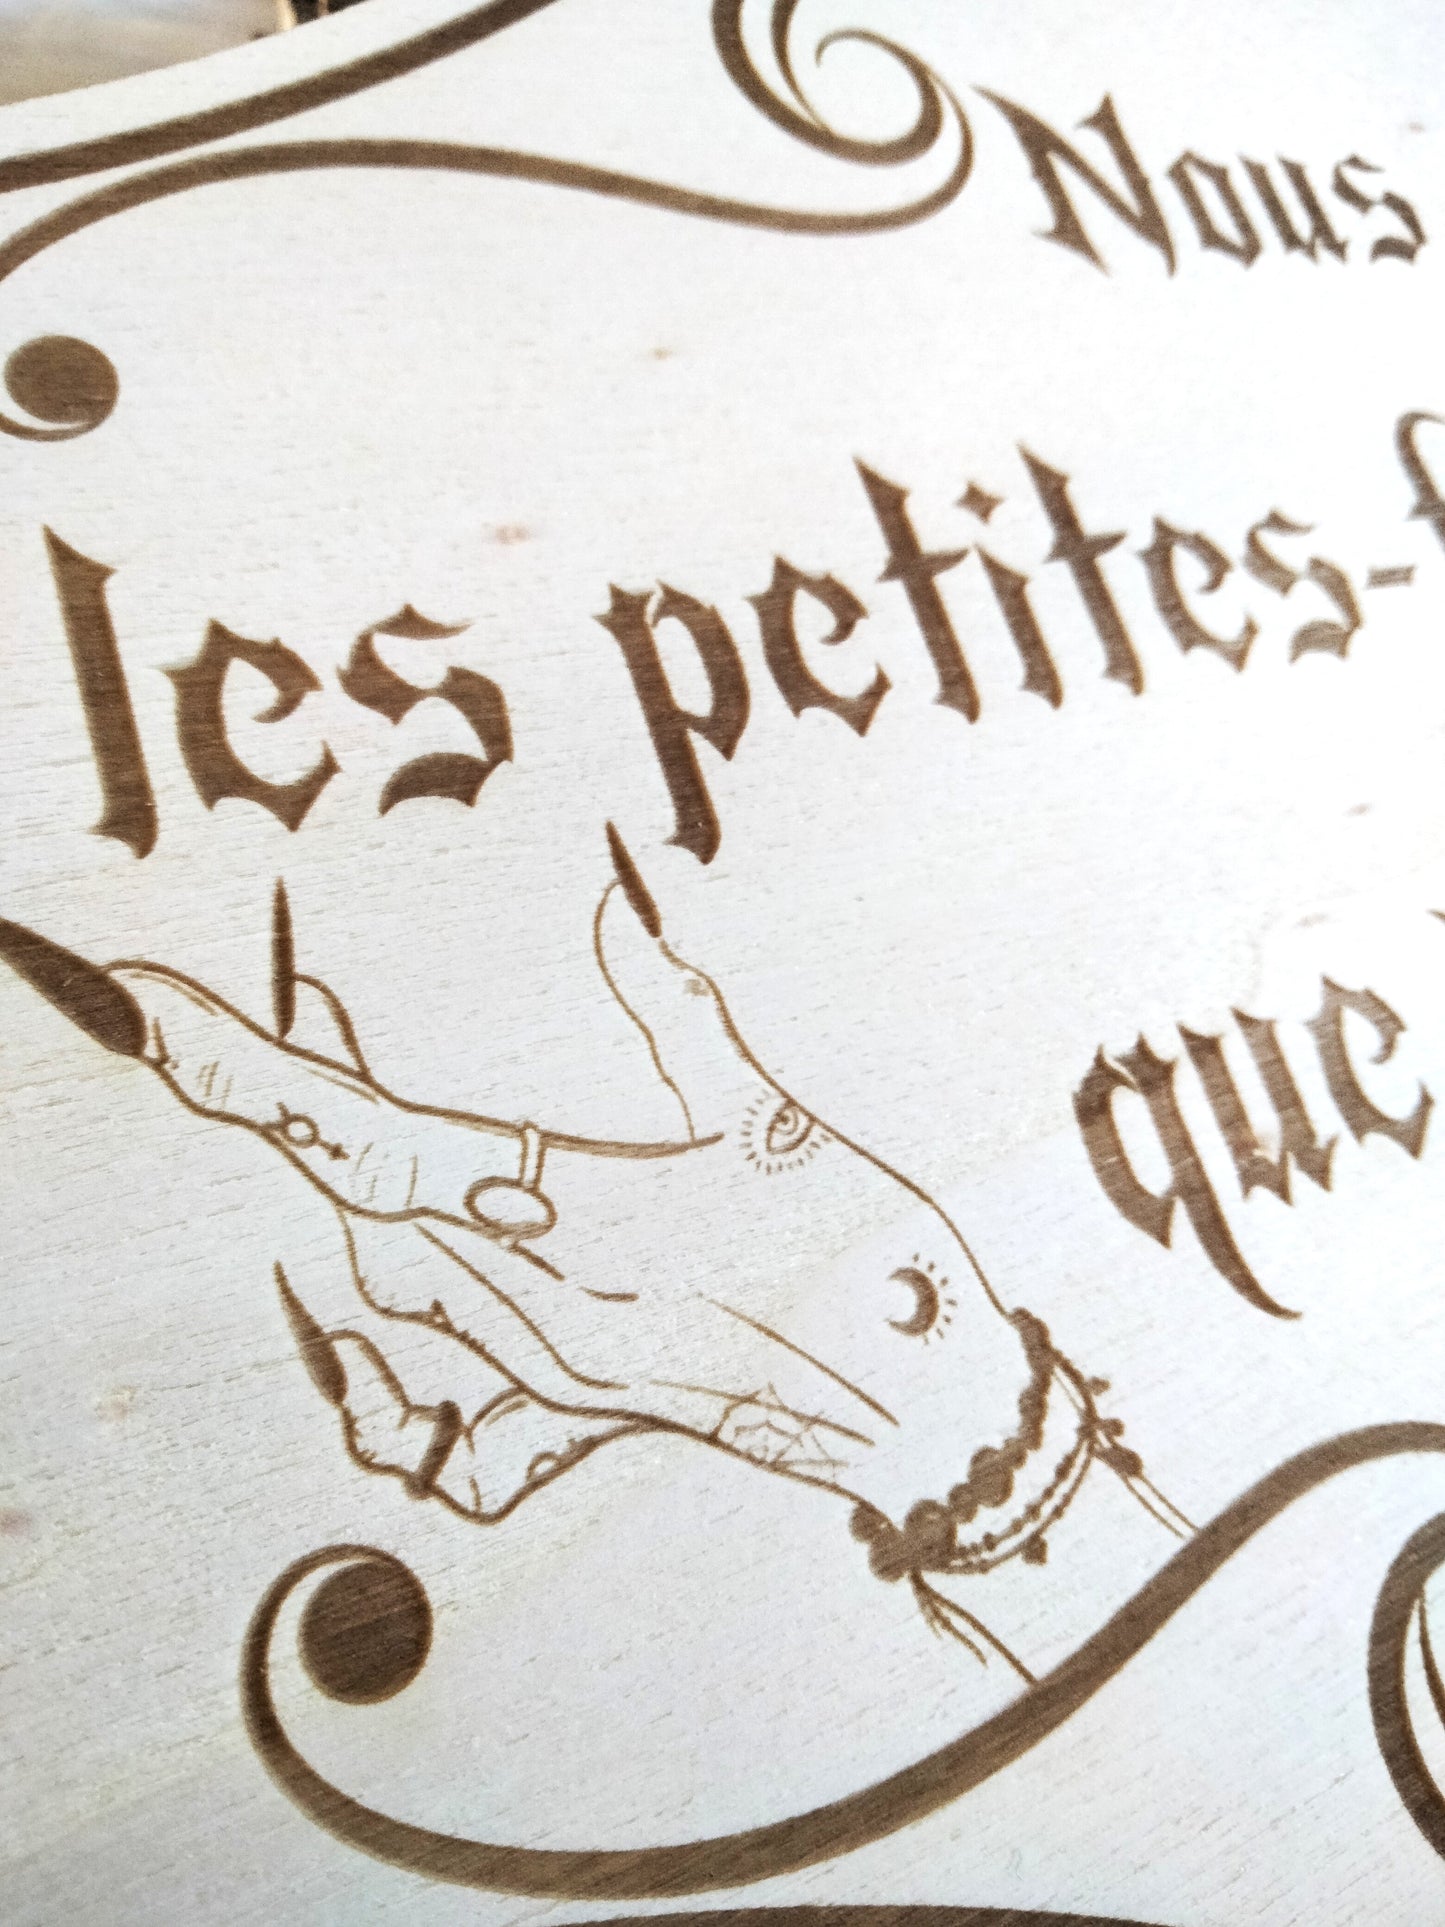 Nous
les petites-f
que